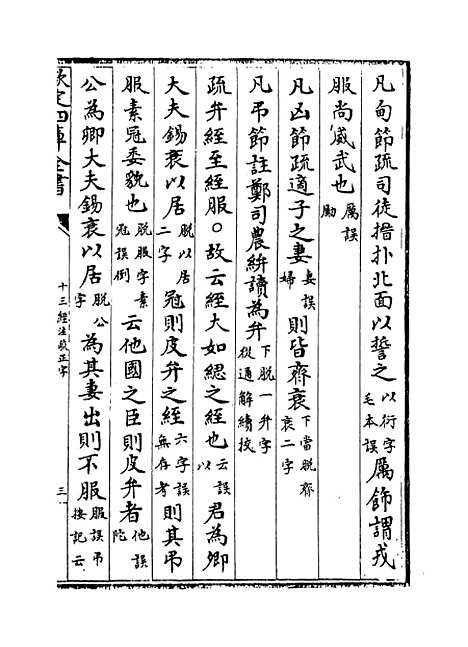 凡甸節疏司徒搢扑北面以誓之以衍字毛本誤厲飾謂戎
服尚威武也厲誤勵
凡凶節疏適子之妻妻誤婦則皆齊衰下當脱齊衰二字
凡弔節註鄭司農絣讀為弁下脱一弁字從通解續挍
疏弁絰至絰服○故云絰大如緦之絰也云誤以君為卿
大夫錫衰以居脱以居二字冠則皮弁之絰六字誤無存考則其弔
服素冠委貌也脱服字素冠誤倒云他國之臣則皮弁者他誤陀
公為卿大夫錫衰以居脱公字為其妻出則不服服誤弔接記云
欽定四庫全書
十三經注疏正字
三